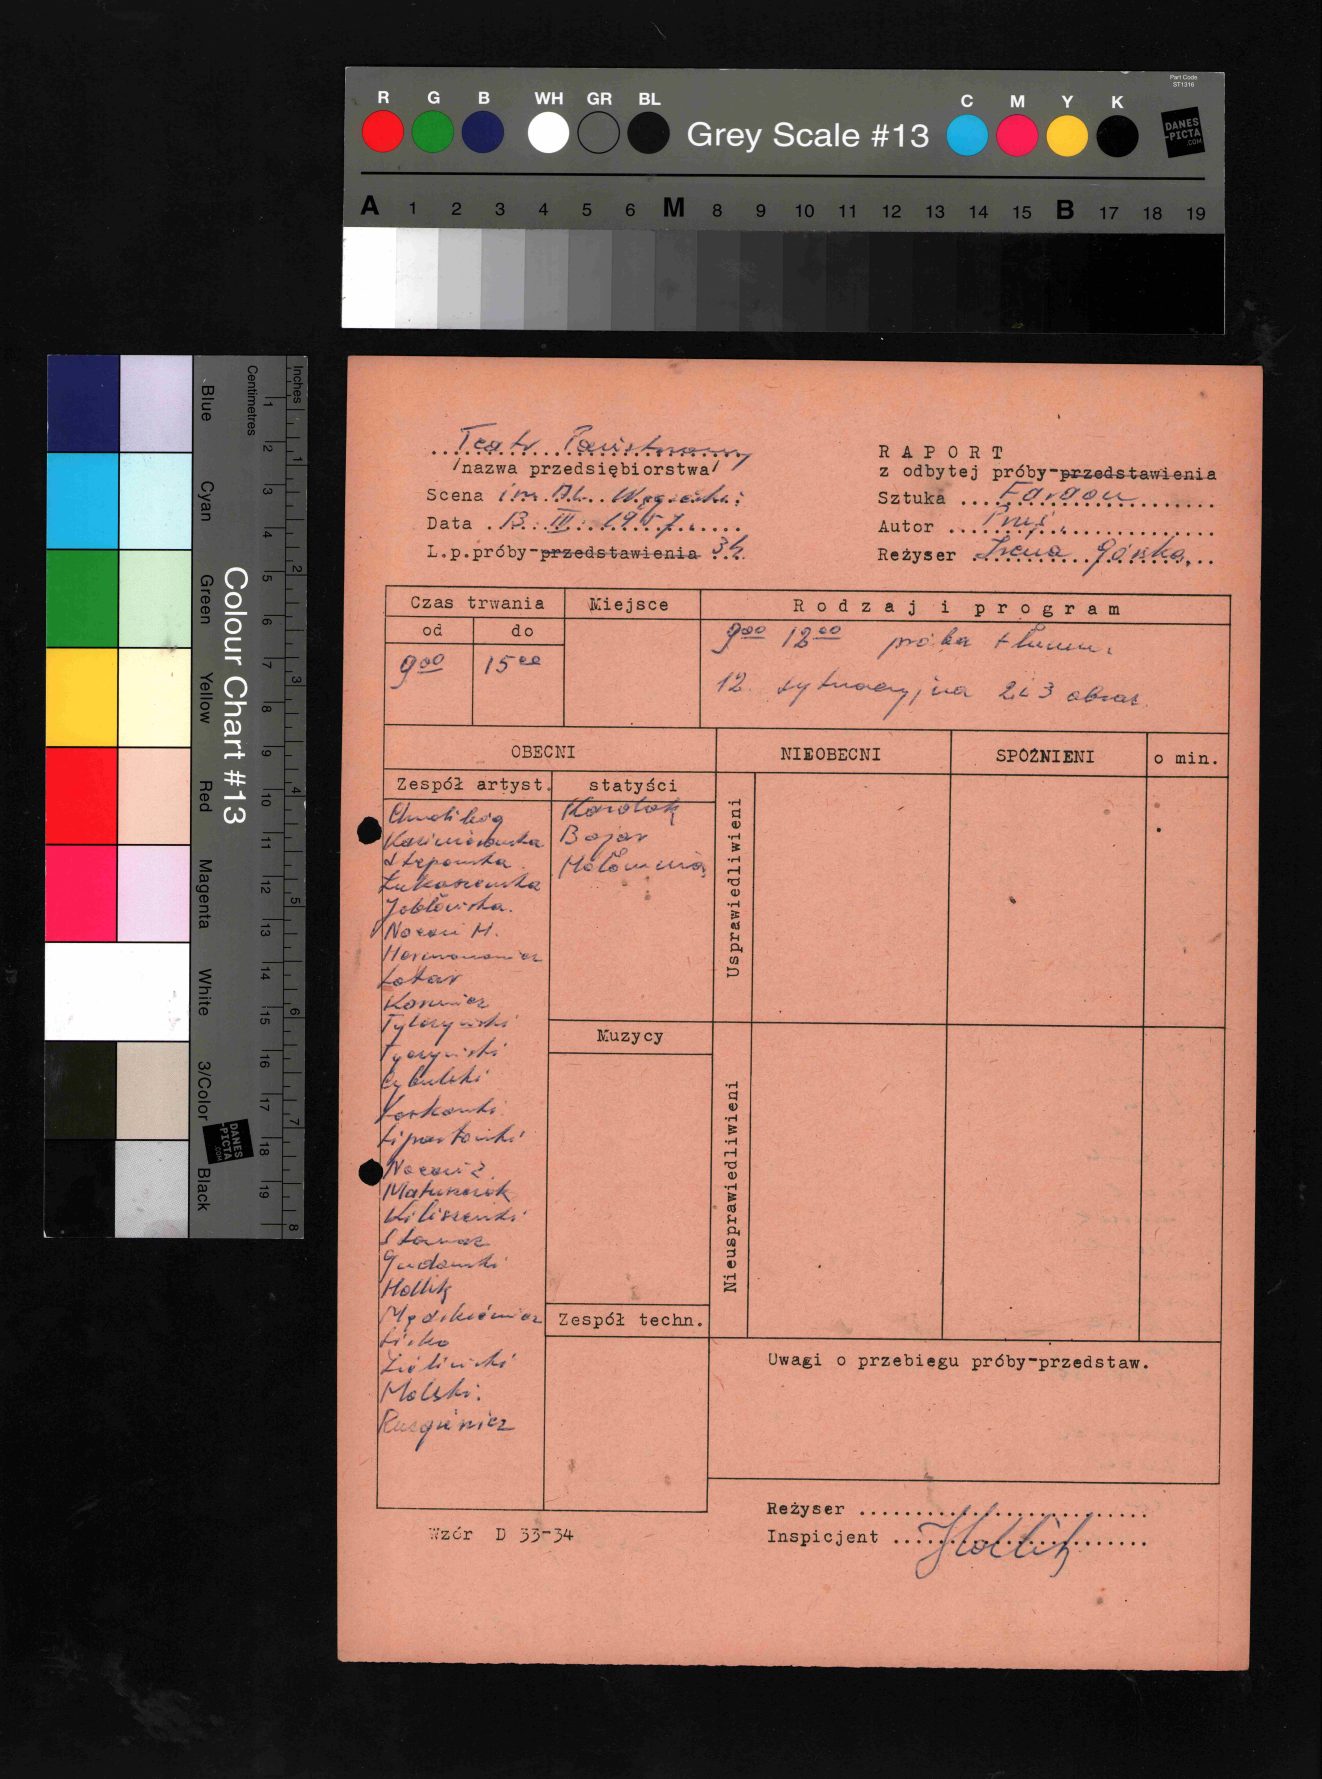 Part Code
ST1316
R G B WH GR BL
C M Y K
Grey Scale #13
DANES
-PICTA
.COM
A 1 2 3 4 5 6 M 8 9 10 11 12 13 14 15 B 17 18 19
Colour Chart #13
Blue Cyan Green Yellow Red Magenta White 3/Color Black
Centimetres
1 2 3 4 5 6 7 8 9 10 11 12 13 14 15 16 17 18 19
Inches
1 2 3 4 5 6 7 8
DANES
-PICTA
.COM
Teatr Państwowy
/nazwa przedsiębiorstwa/
Scena im. Al. Węgierki
Data 13. III. 1957.
L.p.próby-przedstawienia
RAPORT
z odbytej próby-przedstawienia
Sztuka Faraon
Autor Prus.
Reżyser Irena Górska.
Czas trwania
od do
9 00 15 00
Miejsce
Rodzaj i program
9 00 12 00 próba tłumu.
12. sytuacyjna 2 i 3 obraz.
OBECNI
NIEOBECNI
SPÓŹNIENI
o min.
Zespół artyst.
statyści
Kazimierowska
Stępowska
Łukaszewska
Jabłowska.
Nocoń H.
Hermanowicz
Lotar
Kosmicz
Tylczyński
Tyczyński
Cybulski
Laskowski
Lipartowski
Nocoń Z.
Matuszczak
Kiliszewski
Gudowski
Hollik
Mędrkiewicz
Lisko
Zieliński
Molski.
Ruszpiewicz
Bojar
Usprawiedliwieni
Muzycy
Nieusprawiedliwieni
Zespół techn.
Uwagi o przebiegu próby-przedstaw.
Reżyser
Inspicjent Hollik
Wzór D 33-34